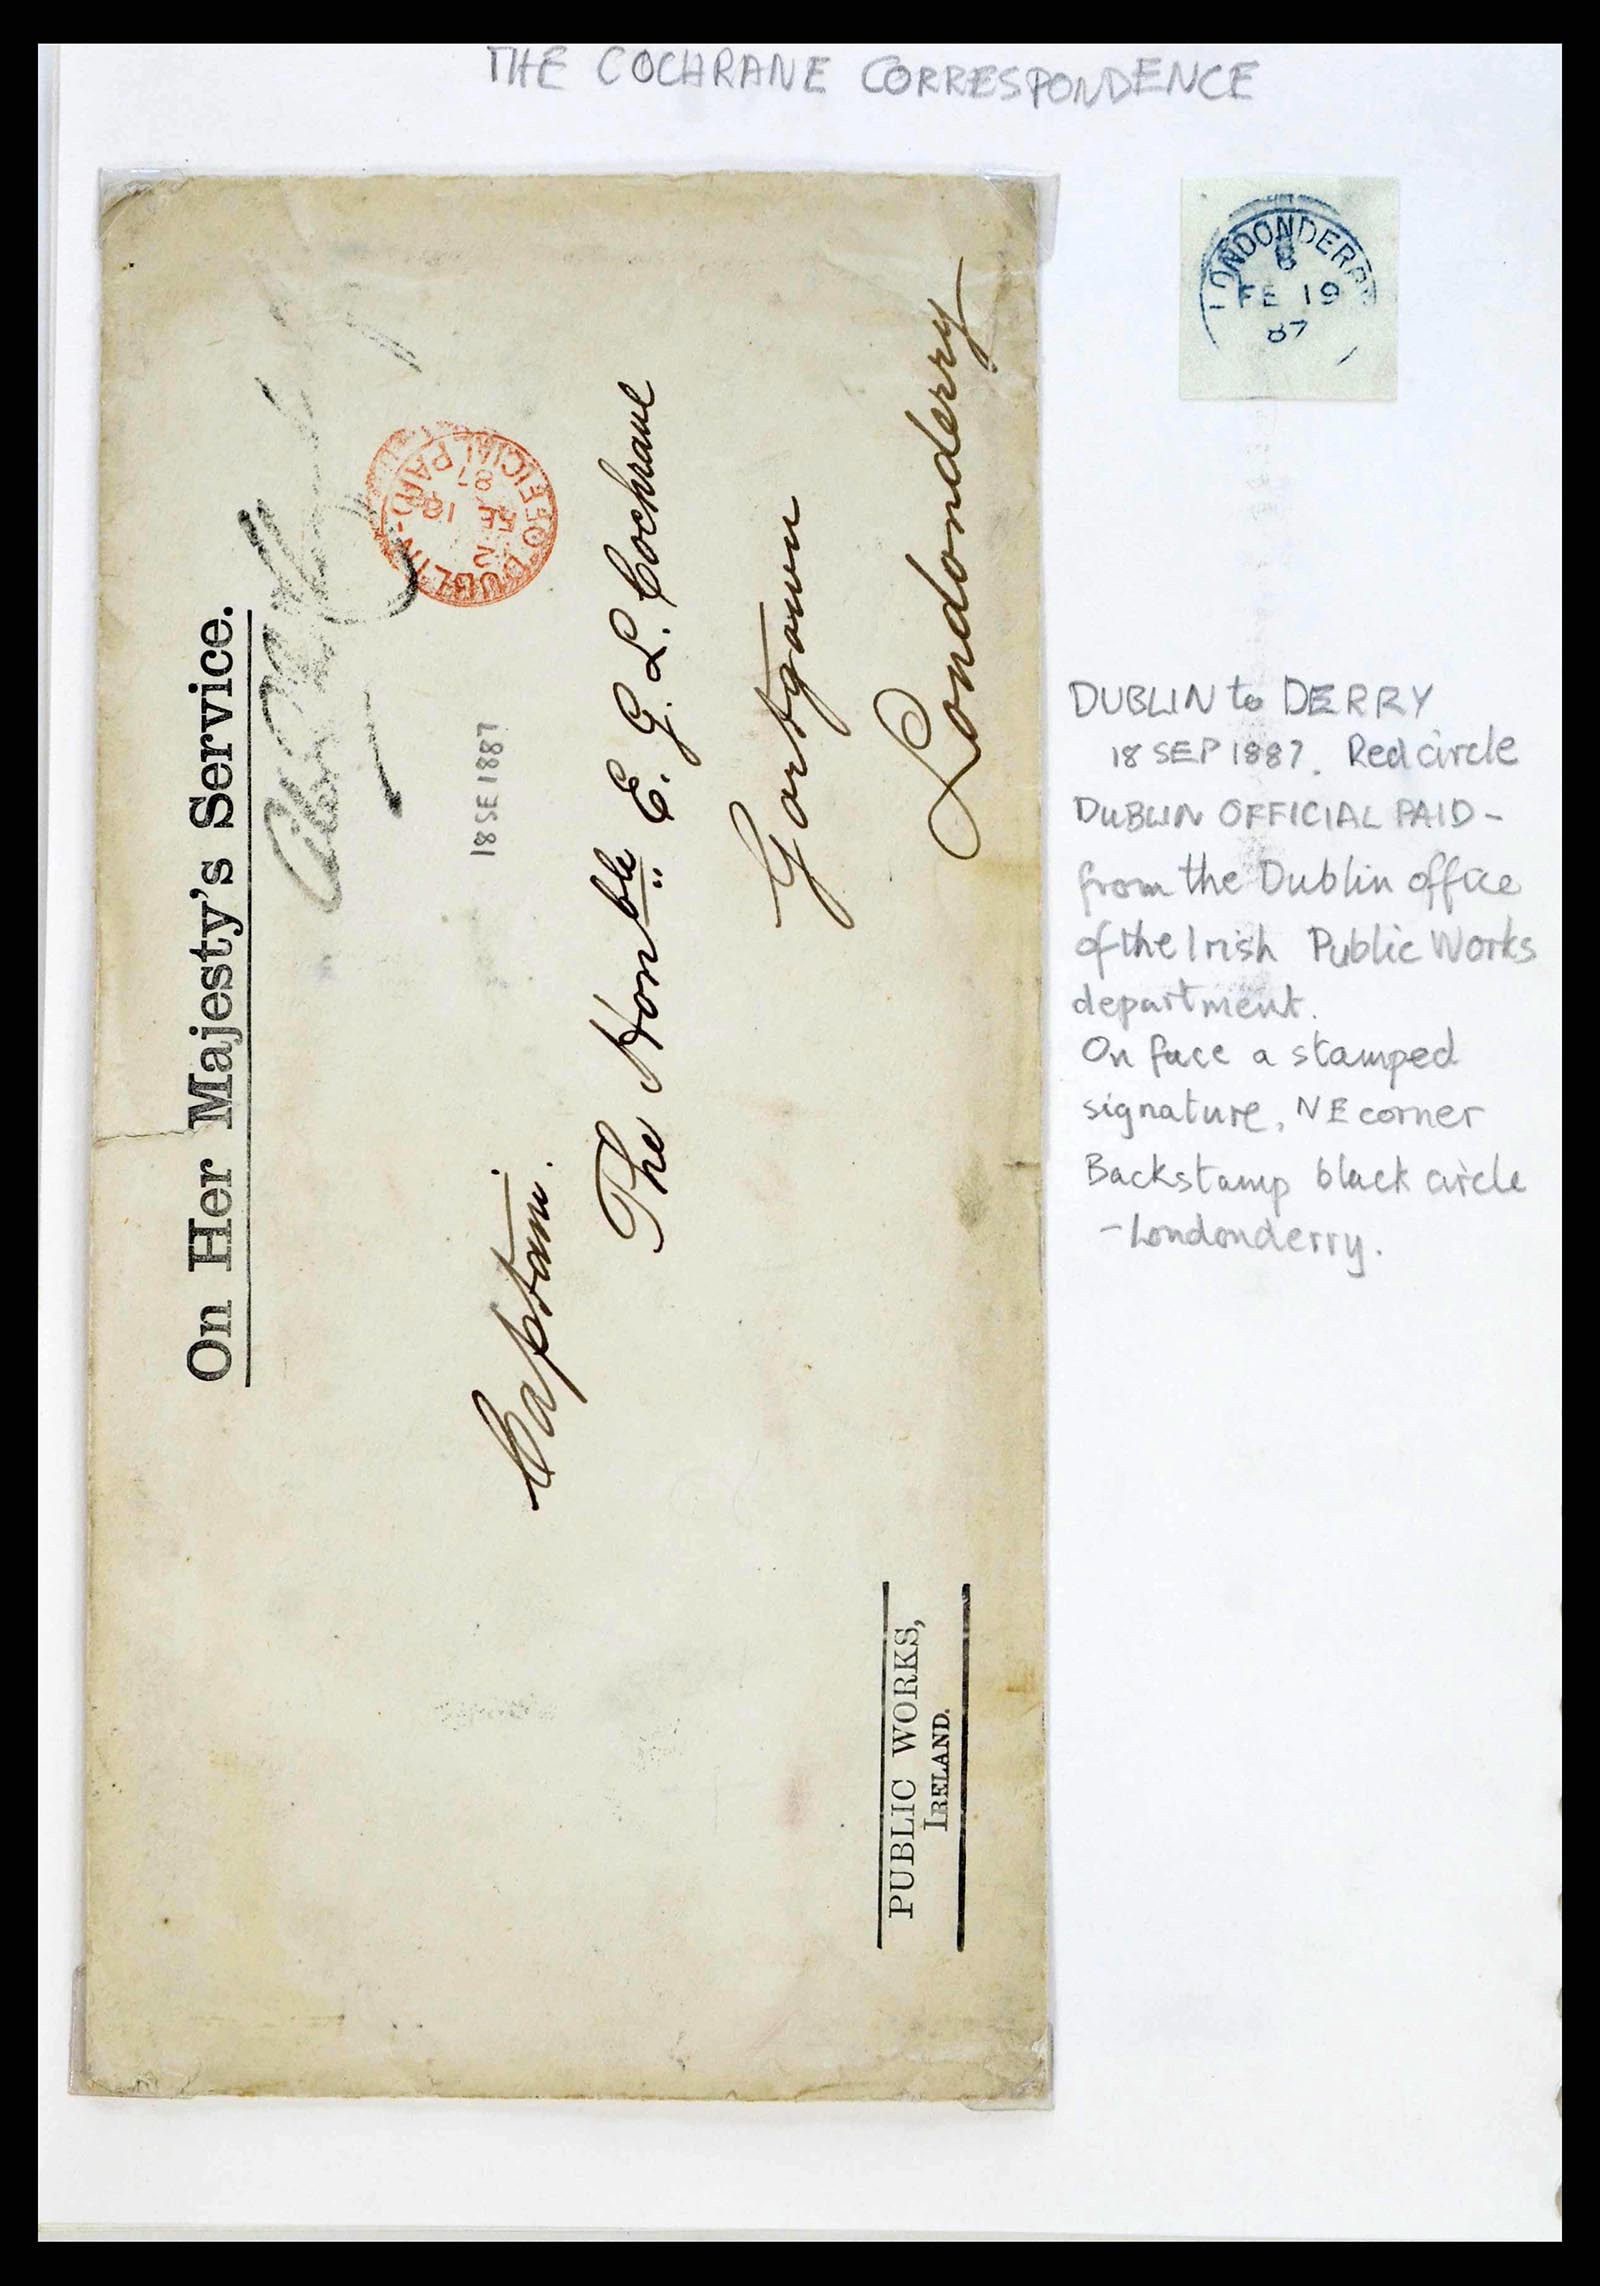 THE COCHRANE CORRESPONDENCE
On Her Majesty's Service.
DUBLIN
OFFICIAL PAID
FE 18
87
18 SE 1887
Captain.
The Honble E. G. L. Cochrane
Gortgowen
Londonderry
PUBLIC WORKS,
IRELAND.
LONDONDERRY
8
FE 19
87
DUBLIN to DERRY
18 SEP 1887. Red circle
DUBLIN OFFICIAL PAID -
from the Dublin office
of the Irish Public Works
department.
On face a stamped
signature, NE corner
Backstamp black circle
- Londonderry.